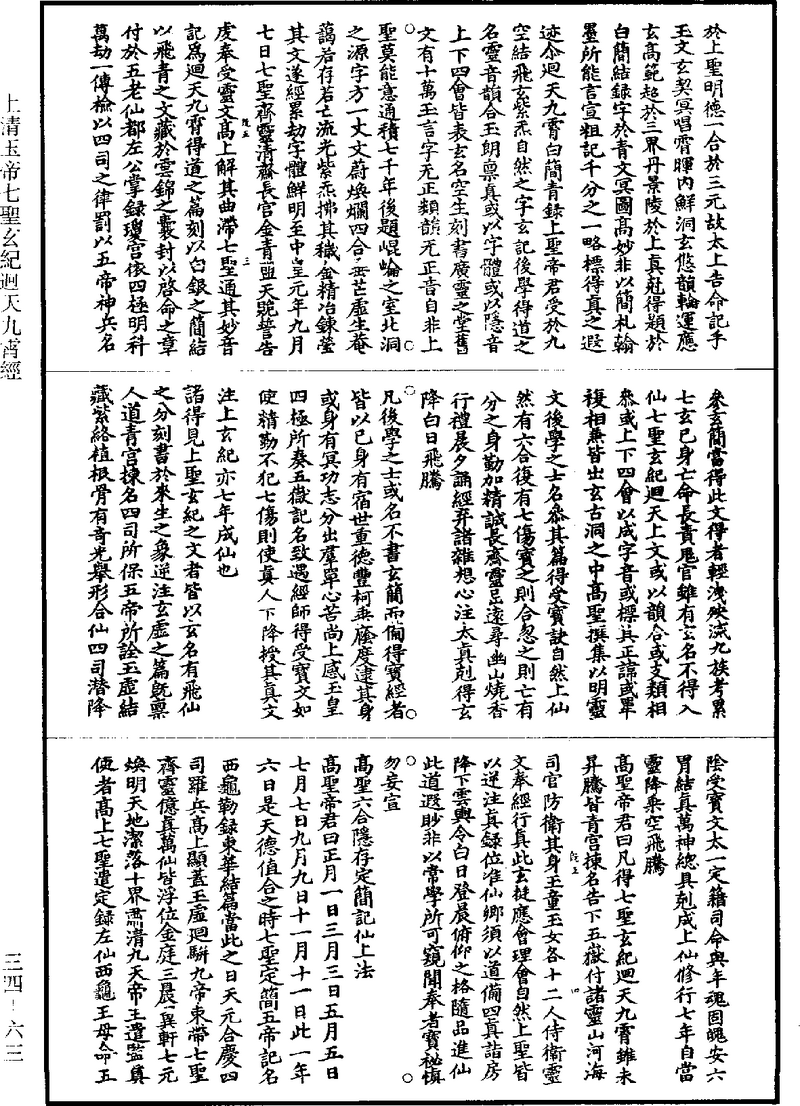 於上聖明德一合於三元故太上告命記乎
玉文玄契冥唱霄暉內鮮洞玄悠韻輪運應
玄高範超於三界丹景陵於上真冠得題於
白簡結錄字於青文冥圖高妙非以簡札翰
墨所能言宣粗記千分之一略標得真之遐
迹尒迴天九霄白簡青錄上聖帝君受於九
空結飛玄紫炁自然之字玄記後學得道之
名靈音韻合玉朗稟真或以字體或以隱音
上下四會皆表玄名空生刻書廣靈之堂舊
文有十萬玉言字无正類韻无正音自非上
聖莫能意通積七千年後題崐崘之室北洞
之源字方一丈文蔚煥爛四合垂芒虛生菴
藹若存若亡流光紫炁拂其穢金精冶鍊瑩
其文遂經累劫字體鮮明至中皇元年九月
七日七聖齊靈清齋長宮金青盟天貺誓告
虔奉受靈文高上解其曲滯七聖通其妙音
記為迴天九霄得道之篇刻以白銀之簡結
以飛青之文藏於雲錦之囊封以啓命之章
付於五老仙都左公掌錄瓊宮依四極明科
萬劫一傳檢以四司之律罰以五帝神兵名
參玄簡當得此文得者輕洩殃流九族考累
七玄己身亡命長責鬼官雖有玄名不得入
仙七聖玄紀迴天上文或以韻合或支類相
參或上下四會以成字音或標其正諱或單
複相兼皆出玄古洞之中高聖撰集以明靈
文後學之士名參其篇得受寶訣自然上仙
然有六合復有七傷寶之則合忽之則亡有
分之身勤加精誠長齋靈岳遠尋幽山燒香
行禮晨夕誦經弃諸雜想心注太真剋得玄
降白日飛騰
凡後學之士或名不書玄簡而備得寶經者
皆以己身有宿世重德豐柯垂廕度逮其身
或身有冥功志分出羣單心苦尚上感玉皇
四極所奏五嶽記名致遇經師得受寶文如
使精勤不犯七傷則使真人下降授其真文
注上玄紀亦七年成仙也
諸得見上聖玄紀之文者皆以玄名有飛仙
之分刻書於來生之象逆注玄虛之篇既稟
人道青宮揀名四司所保五帝所詮玉虛結
藏紫絡植根骨有奇光舉形合仙四司潛降
陰受寶文太一定籍司命與年魂固魄安六
胃結真萬神總具剋成上仙修行七年自當
靈降乘空飛騰
高聖帝君曰凡得七聖玄紀迴天九霄雖未
昇騰皆青宮揀名告下五嶽付諸靈山河海
司官防衛其身玉童玉女各十二人侍衛靈
文奉經行真此玄挺應會理會自然上聖皆
以逆注真錄位准仙卿須以道備四真詣房
降下雲輿令白日登晨俯仰之格隨品進仙
此道遐眇非以常學所可窺聞奉者寶祕慎
勿妄宣
高聖六合隱存定簡記仙上法
高聖帝君曰正月一日三月三日五月五日
七月七日九月九日十一月十一日此一年
六日是天德值合之時七聖定簡五帝記名
西龜勒錄東華結篇當此之日天元合慶四
司羅兵高上顯蓋玉虛迴駢九帝束帶七聖
齊靈億真萬仙皆浮位金庭三晨巽軒七元
煥明天地潔落十界肅清九天帝王遣監真
使者高上七聖遣定錄左仙西龜王母命五
上清玉帝七聖玄紀迴天九霄經
三四－六三